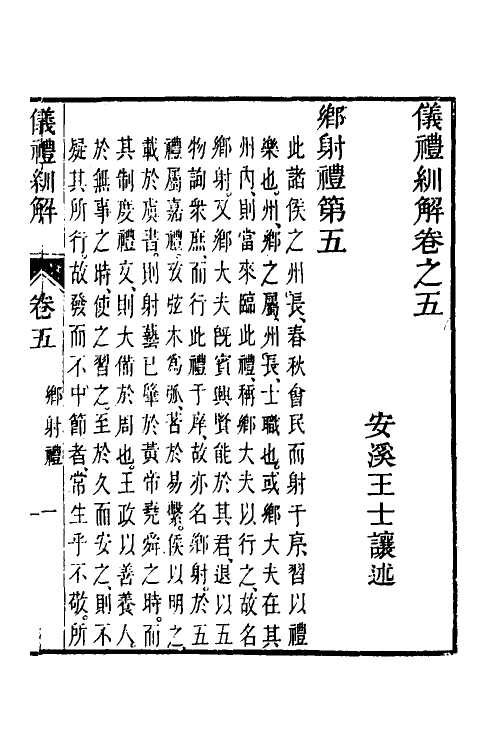 儀禮紃解卷之五
安溪王士讓述
鄉射禮第五
此諸侯之州長、春秋會民而射于序、習以禮
樂也。州、鄉之屬、州長、士職也。或鄉大夫在其
州內、則當來臨此禮、稱鄉大夫以行之、故名
鄉射。又鄉大夫旣賓興賢能於其君、退以五
物詢衆庶、而行此禮于庠、故亦名鄉射。於五
禮屬嘉禮。攷弦木爲弧、著於易繫。侯以明之、
載於虞書。則射藝已肇於黃帝堯舜之時。而
其制度禮文、則大備於周也。王政以善養人。
於無事之時、使之習之。至於久而安之、則不
疑其所行。故發而不中節者、常生乎不敬。所
儀禮紃解
卷五
鄉射禮
一